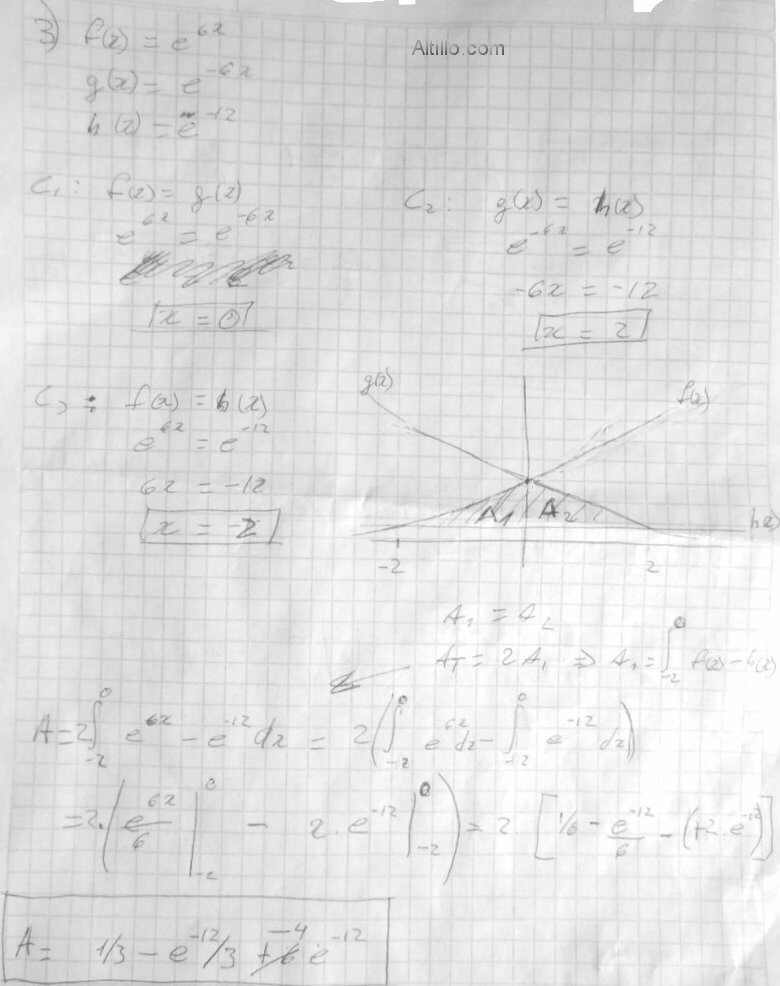 Altillo.com
3) f(x) = e^{6x}
g(x) = e^{-6x}
h(x) = e^{-12}
C_1: f(x) = g(x)
e^{6x} = e^{-6x}
x = 0
C_2: g(x) = h(x)
e^{-6x} = e^{-12}
-6x = -12
x = 2
C_3: f(x) = h(x)
e^{6x} = e^{-12}
6x = -12
x = -2
g(x) f(x)
A_1 A_2 h(x)
-2 2
A_1 = A_2
A_T = 2A_1 ⇒ A_1 = ∫_{-2}^{0} f(x) - h(x)
A = 2∫_{-2}^{0} e^{6x} - e^{-12} dx = 2(∫_{-2}^{0} e^{6x} dx - ∫_{-2}^{0} e^{-12} dx)
= 2.(e^{6x}/6 |_{-2}^{0} - 2.e^{-12} |_{-2}^{0}) = 2.[1/6 - e^{-12}/6 - (+2.e^{-12})]
A = 1/3 - e^{-12}/3 -4 e^{-12}